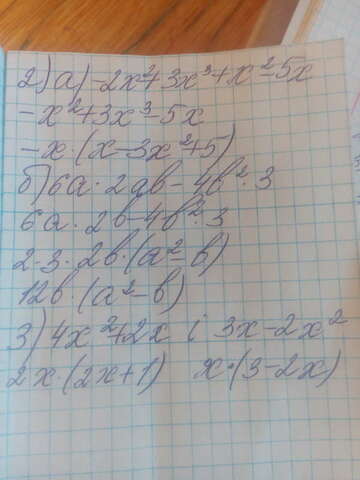 2) а) -2x²+3x³+x²-5x
-x²+3x³-5x
-x·(x-3x²+5)
б) 6a·2ab-4b²·3
6a·2b-4b²·3
2·3·2b·(a²-b)
12b·(a²-b)
3) 4x²+2x і 3x-2x²
2x·(2x+1) x·(3-2x)